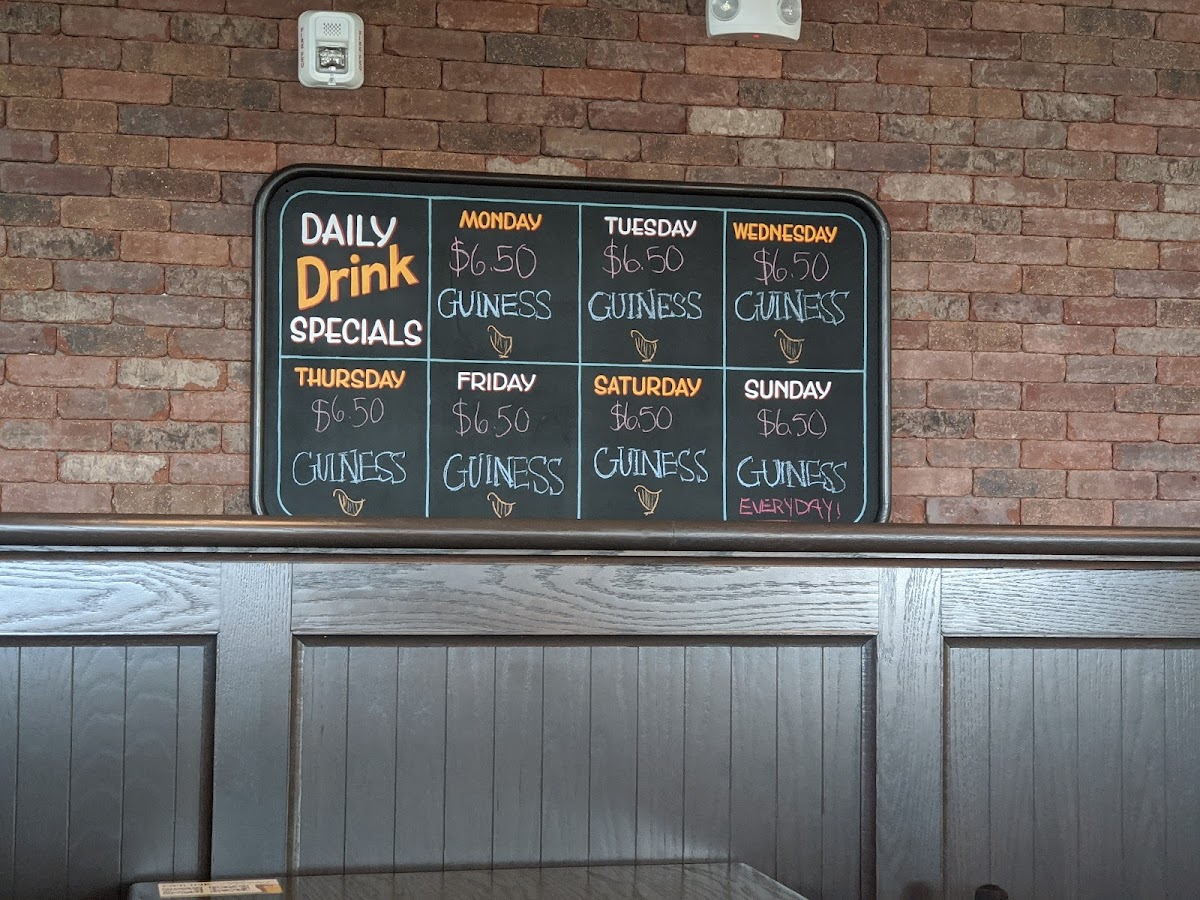 DAILY
Drink
SPECIALS
MONDAY
$6.50
GUINESS
TUESDAY
$6.50
GUINESS
WEDNESDAY
$6.50
GUINESS
THURSDAY
$6.50
GUINESS
FRIDAY
$6.50
GUINESS
SATURDAY
$6.50
GUINESS
SUNDAY
$6.50
GUINESS
EVERYDAY!